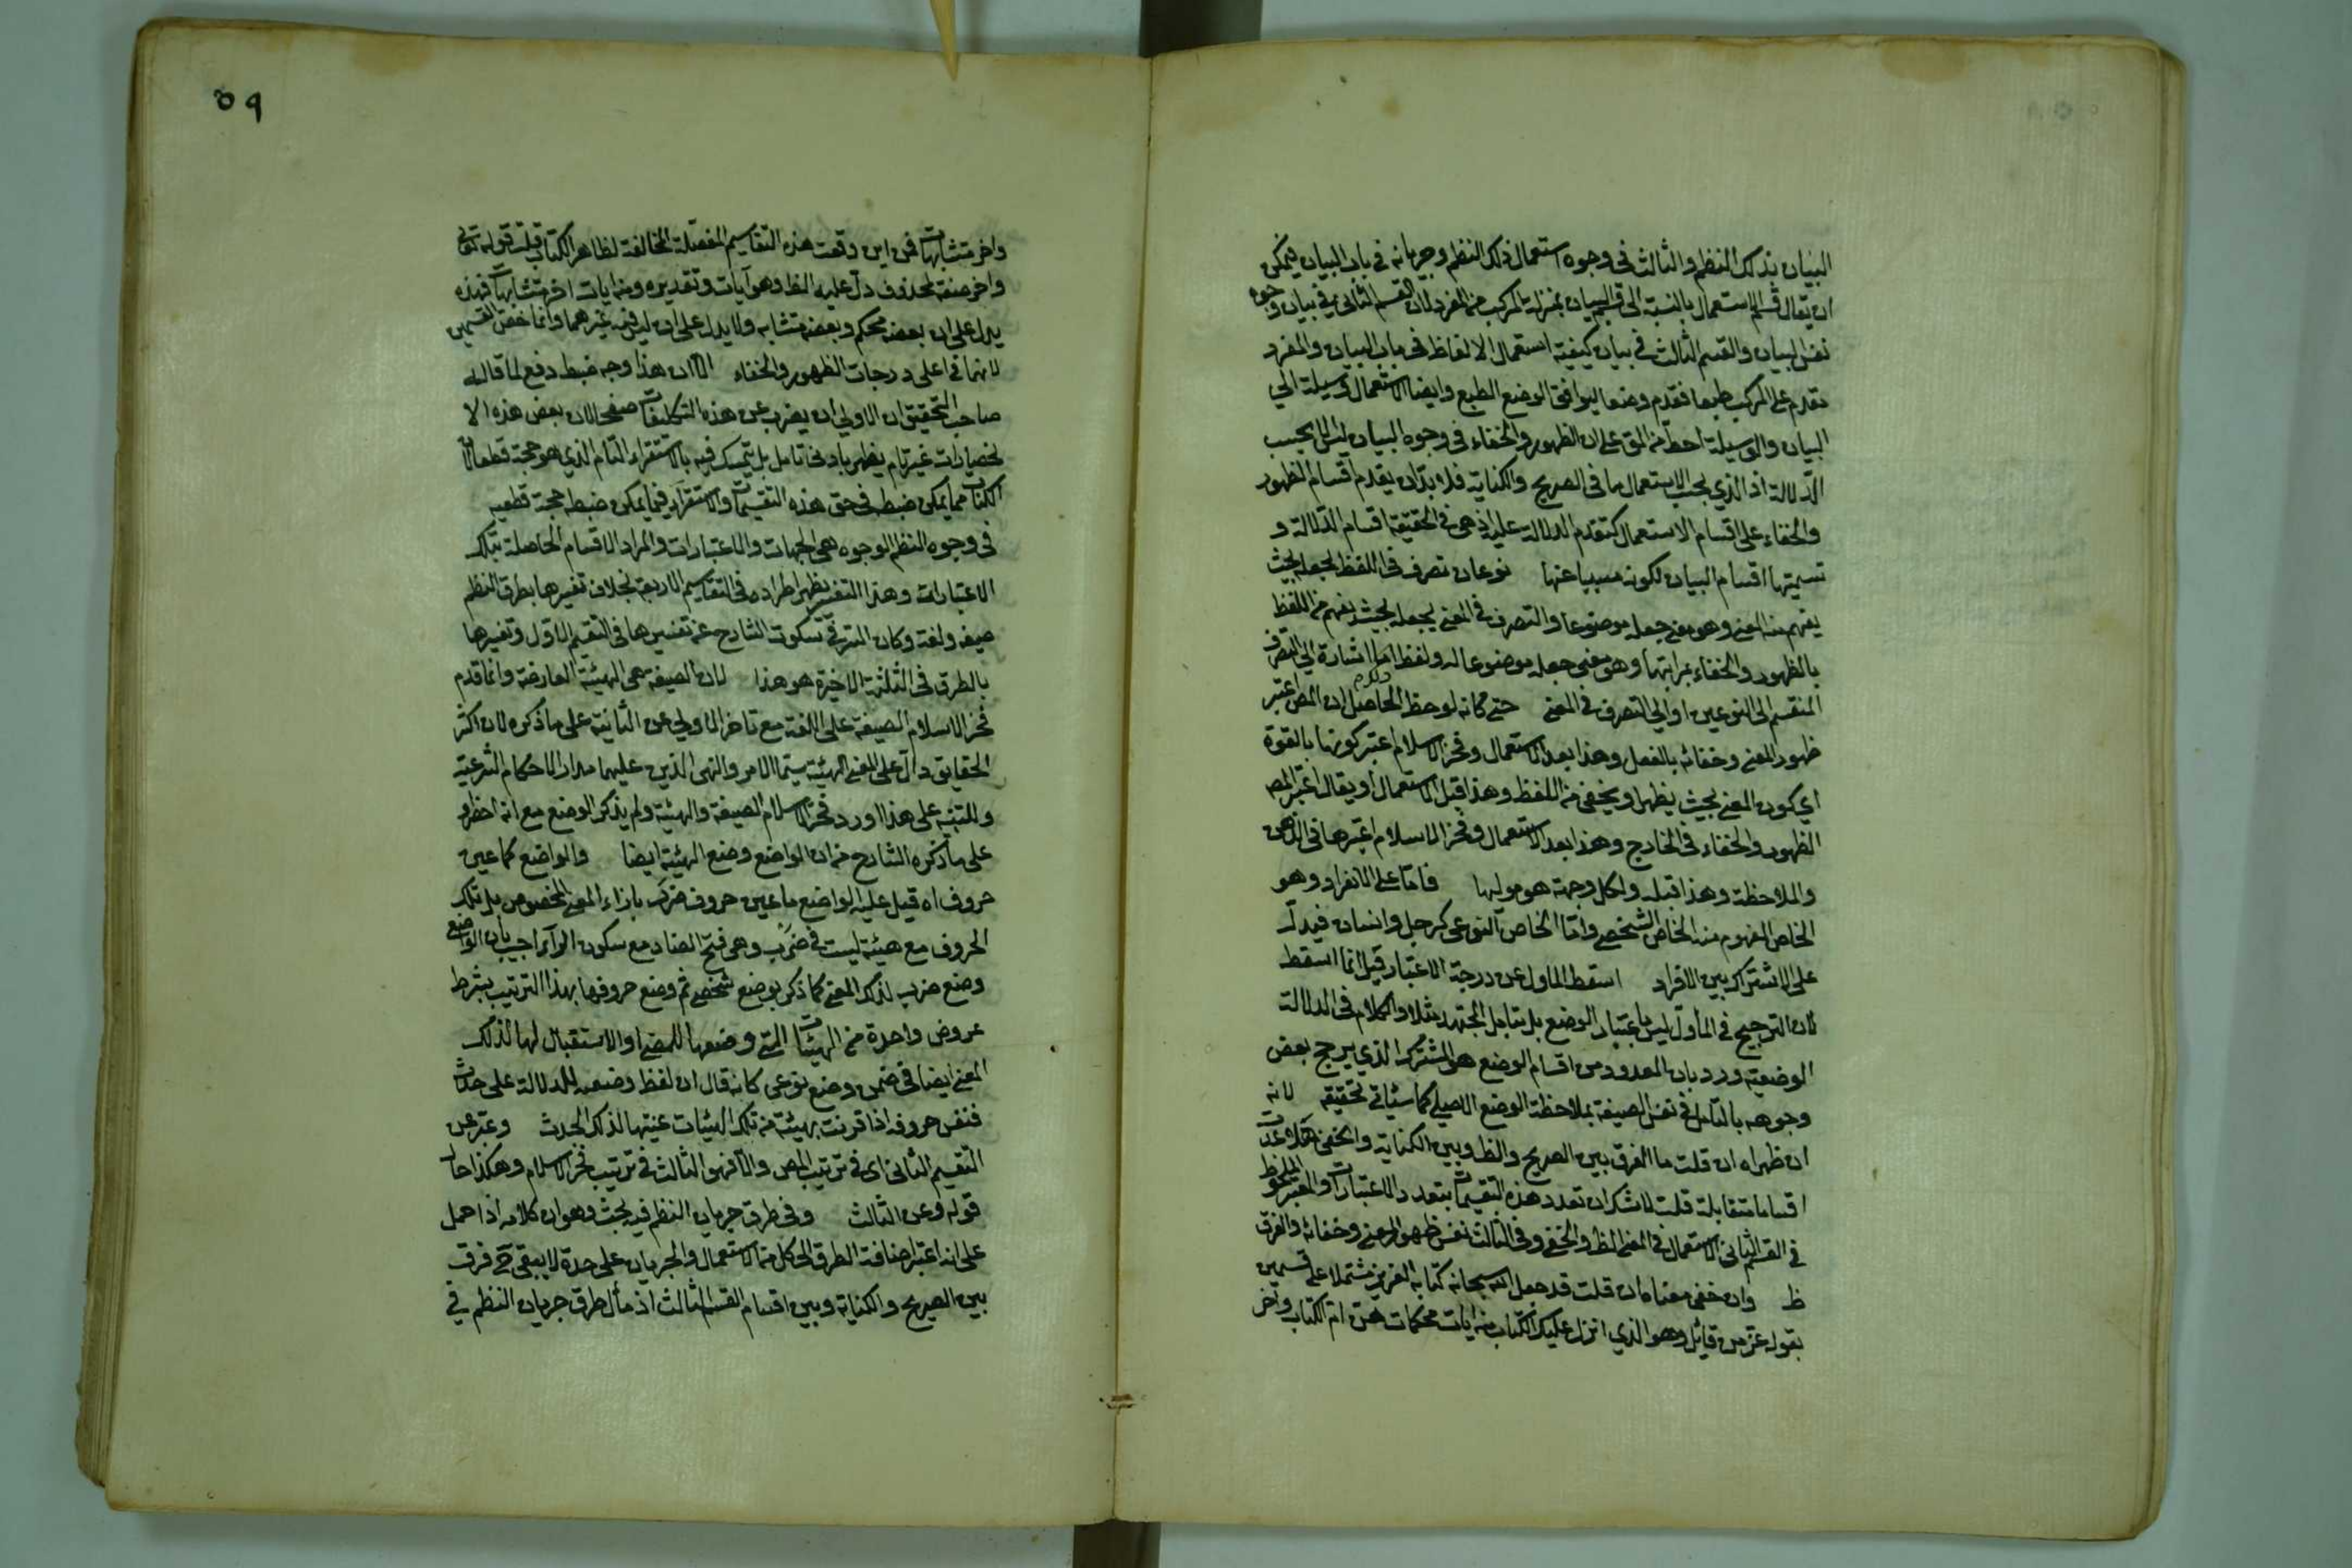 البيان بذلك النظم والثالث في وجوه استعمال ذلك النظم وجريانه في باب البيان فيمكن
ان يقال قسم الاستعمال بالنسبة الى قسم البيان بمنزلة المركب من المفرد لان القسم الثاني في بيان وجوه
نفس البيان والقسم الثالث في بيان كيفية استعمال الالفاظ في باب البيان والمفرد
مقدم على المركب طبعا فقدم وضعا ليوافق الوضع الطبع وايضا الاستعمال وسيلة الى
البيان والوسيلة احط من المق على ان الظهور والخفاء في وجوه البيان ليس الا بحسب
الدلالة اذ الذي بحسب الاستعمال ما في الصريح والكناية فلا بد ان يقدم اقسام الظهور
والخفاء على اقسام الاستعمال كتقدم الدلالة عليه اذ هي في الحقيقة اقسام الدلالة و
تسميتها اقسام البيان لكونه مسببا عنها نوعان تصرف في اللفظ بجعله بحيث
يفهم منه المعنى وهو معنى جعله موضوعا والتصرف في المعنى بجعله بحيث يفهم من اللفظ
بالظهور والخفاء بمراتبها وهو معنى جعله موضوعا له ولفظ اشارة الى التصرف
المنقسم الى النوعين او الى التصرف في المعنى حتى كانه لوحظ الحاصل ان المص اعتبر
ظهور المعنى وخفائه بالفعل وهذا بعد الاستعمال وفخر الاسلام اعتبر كونها بالقوة
اي كون المعنى بحيث يظهر او يخفى من اللفظ وهذا قبل الاستعمال او يقال اعتبر المص
الظهور والخفاء في الخارج وهذا بعد الاستعمال وفخر الاسلام اعتبرها في الذهن
والملاحظة وهذا قبله ولكل وجهة هو موليها فاما على الانفراد وهو
الخاص المفهوم منه الخاص الشخصي واما الخاص النوعي كرجل وانسان فيدل
على الاشتراك بين الافراد اسقط الماول عن درجة الاعتبار قيل انما اسقط
لان الترجيح في المأول ليس باعتبار الوضع بل بتامل المجتهد مثلا والكلام في الدلالة
الوضعية ورد بان المعدود من اقسام الوضع هو المشترك الذي يرجح بعض
وجوهه بالتامل في نفس الصيغة بملاحظة الوضع الاصلي كما سيأتي تحقيقه لانه
ان ظهر اه ان قلت ما الفرق بين الصريح والظ وبين الكناية والخفي
اقساما متقابلة قلت لا شك ان تعدد هذه التقسيمات بتعدد الاعتبارات والمعتبر الملحوظ
في القسم الثاني الاستعمال في المعنى الظ والخفي وفي الثالث نفس ظهور المعنى وخفائه والفرق
ظ وان خفي معناه ان قلت قد جعل الله سبحانه كتابه العزيز مشتملا على قسمين
بقوله عز من قائل وهو الذي انزل عليك الكتاب منه ايات محكمات هن ام الكتاب واخر
٥٩
واخر متشابهات فمن اين وقعت هذه التقاسيم المفصلة المخالفة لظاهر الكتاب قلت قوله تعالى
واخر صفة لمحذوف دل عليه الظ وهو آيات وتقديره ومنه ايات اخر متشابهات فهذه
يدل على ان بعضه محكم وبعضه متشابه ولا يدل على ان ليس فيه غيرهما وانما خص القسمين
لانهما في اعلى درجات الظهور والخفاء الا ان هذا وجه ضبط دفع لما قاله
صاحب التحقيق ان الاولى ان يضرب عن هذه التكلفات صفحا لان بعض هذه الا
نحصارات غير تام يظهر بادنى تامل بل يتمسك فيه بالاستقراء التام الذي هو حجة قطعا لان
الكتاب مما يمكن ضبطه في حق هذه التقسيمات والاستقراء فيما يمكن ضبطه حجة قطعية
في وجوه النظم الوجوه هي الجهات والاعتبارات والمراد الاقسام الحاصلة بتلك
الاعتبارات وهذا التفسير يظهر اطراده في التقاسيم الاربعة بخلاف تفسيرها بطرق النظم
صيغة ولغة وكان السر في سكوت الشارح عن تفسيرها في التقسيم الاول وتفسيرها
بالطرق في الثلثة الاخيرة هو هذا لان الصيغة هي الهيئة العارضة وانما قدم
فخر الاسلام الصيغة على اللغة مع تاخر الاولى عن الثانية على ما ذكره لان اكثر
الحقايق دال على المعنى الهيئة سيما الامر والنهي الذين عليهما مدار الاحكام الشرعية
وللتنبيه على هذا اورد فخر الاسلام الصيغة والهيئة ولم يذكر الوضع مع انه
على ما ذكره الشارح من ان الواضع وضع الهيئة ايضا والواضع كما عين
حروف اه قيل عليه الواضع ما عين حروف ضرب بازاء المعنى المخصوص بل تلك
الحروف مع هيئة ليست في ضرب وهي فتح الضاد مع سكون الراء اجيب بان الواضع
وضع ضرب لذلك المعنى كما ذكر بوضع شخصي ثم وضع حروفها بهذا الترتيب بشرط
عروض واحدة من الهيئات التي وضعها للمضي او الاستقبال لها لذلك
المعنى ايضا في ضمن وضع نوعي كانه قال ان لفظ وضعه للدلالة على حدث
فنفس حروفه اذا قرنت بهيئة من تلك الهيئات عنيتها لذلك الحدث وعبر عن
التقسيم الثاني اى في ترتيب المص والا فهو الثالث في ترتيب فخر الاسلام وهكذا حال
قوله وعن الثالث وفي طرق جريان النظم فيه بحث وهو ان كلامه اذا حمل
على انه اعتبر اضافة الطرق الى كل من الاستعمال والجريان على حدة لا يبقى ح فرق
بين الصريح والكناية وبين اقسام القسم الثالث اذ مأل طرق جريان النظم في